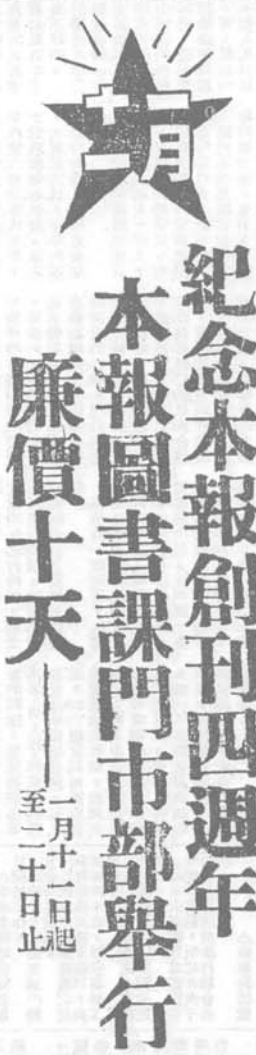 一月
十一
紀念本報創刊四週年
本報圖書課門市部舉行
廉價十天——
一月十一日起
至二十日止